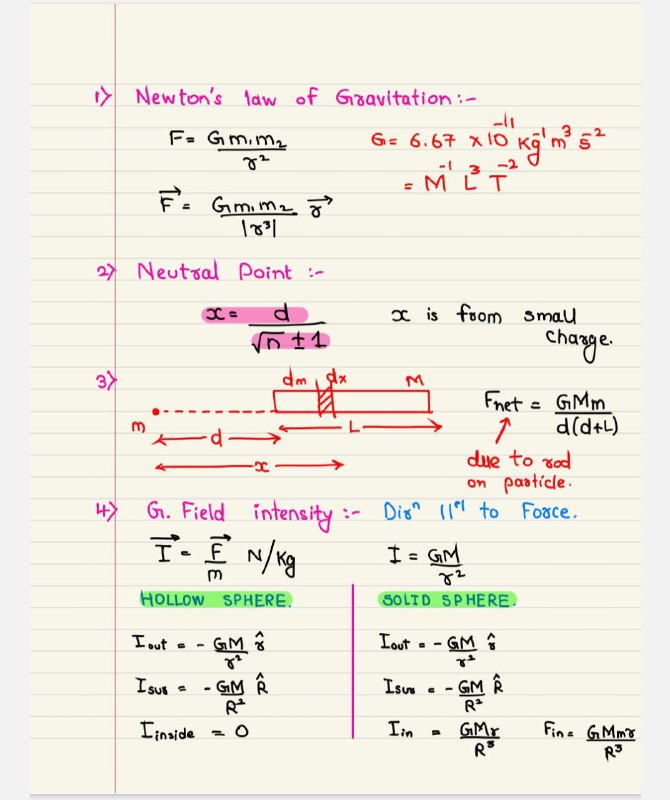 1) Newton's law of Gravitation :-
F = Gm₁m₂/r² G = 6.67 × 10⁻¹¹ kg⁻¹ m³ s⁻²
= M⁻¹ L³ T⁻²
F⃗ = Gm₁m₂/|r³| r⃗
2) Neutral Point :-
x = d/(√n ± 1) x is from small
charge.
3) dm dx M
m d L x
Fnet = GMm/d(d+L)
due to rod
on particle.
4) G. Field intensity :- Dirⁿ ||ᵉˡ to Force.
I⃗ = F⃗/m N/Kg I = GM/r²
HOLLOW SPHERE. SOLID SPHERE.
Iout = - GM/r² r̂ Iout = - GM/r² r̂
Isur = - GM/R² R̂ Isur = - GM/R² R̂
Iinside = 0 Iin = GMr/R³ Fin = GMmr/R³